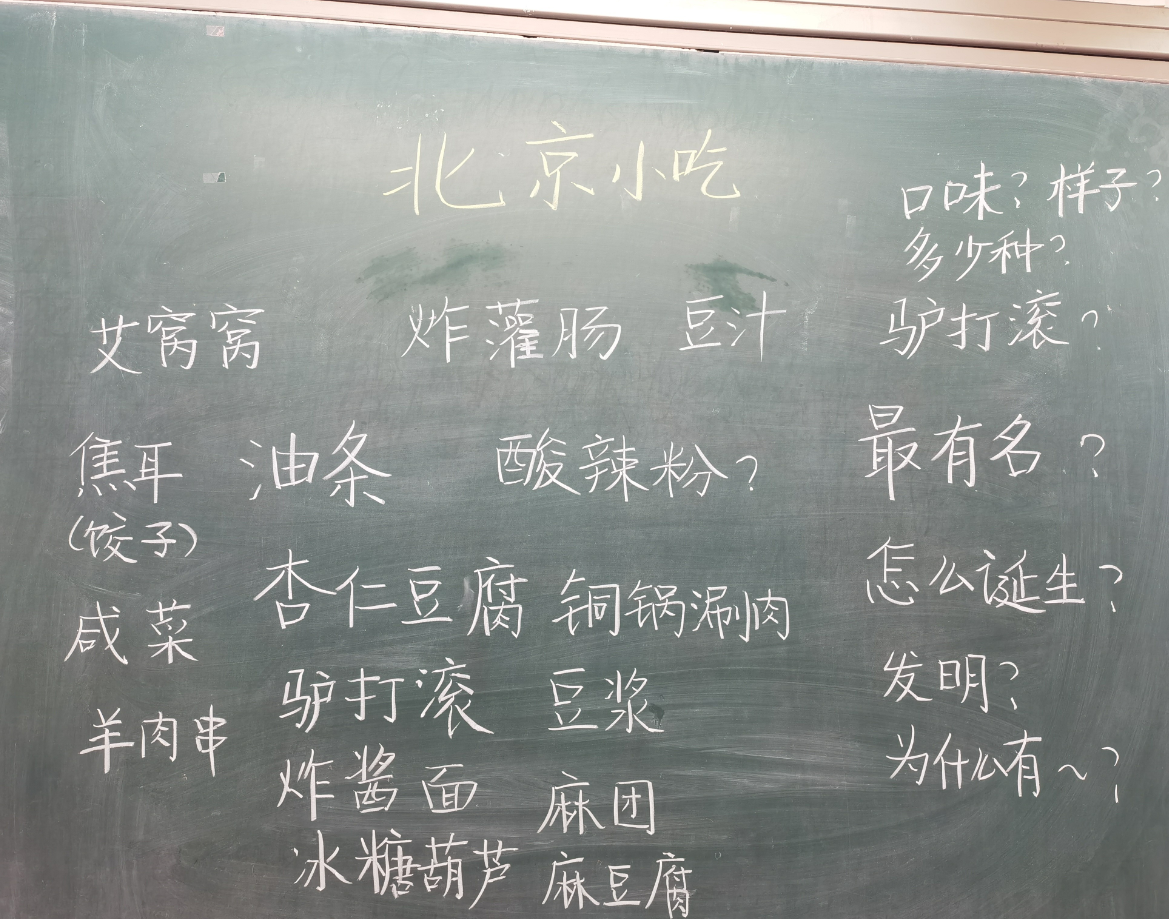 北京小吃
口味？样子？
多少种？
艾窝窝 炸灌肠 豆汁 驴打滚？
焦耳 油条 酸辣粉？ 最有名？
(饺子)
杏仁豆腐 铜锅涮肉 怎么诞生？
咸菜
驴打滚 豆浆 发明？
羊肉串
炸酱面 麻团 为什么有~？
冰糖葫芦 麻豆腐